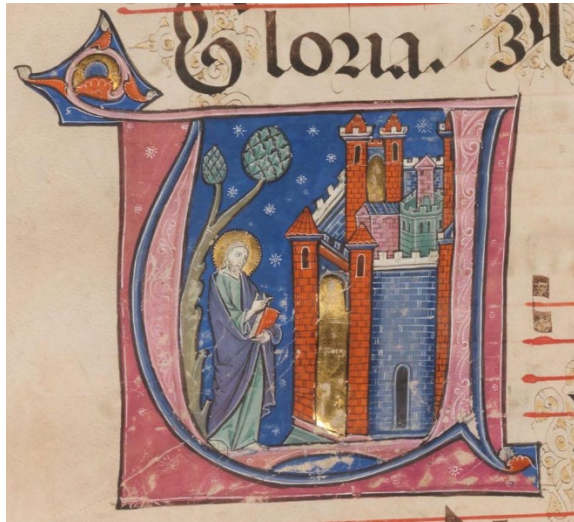 Gloria.
V